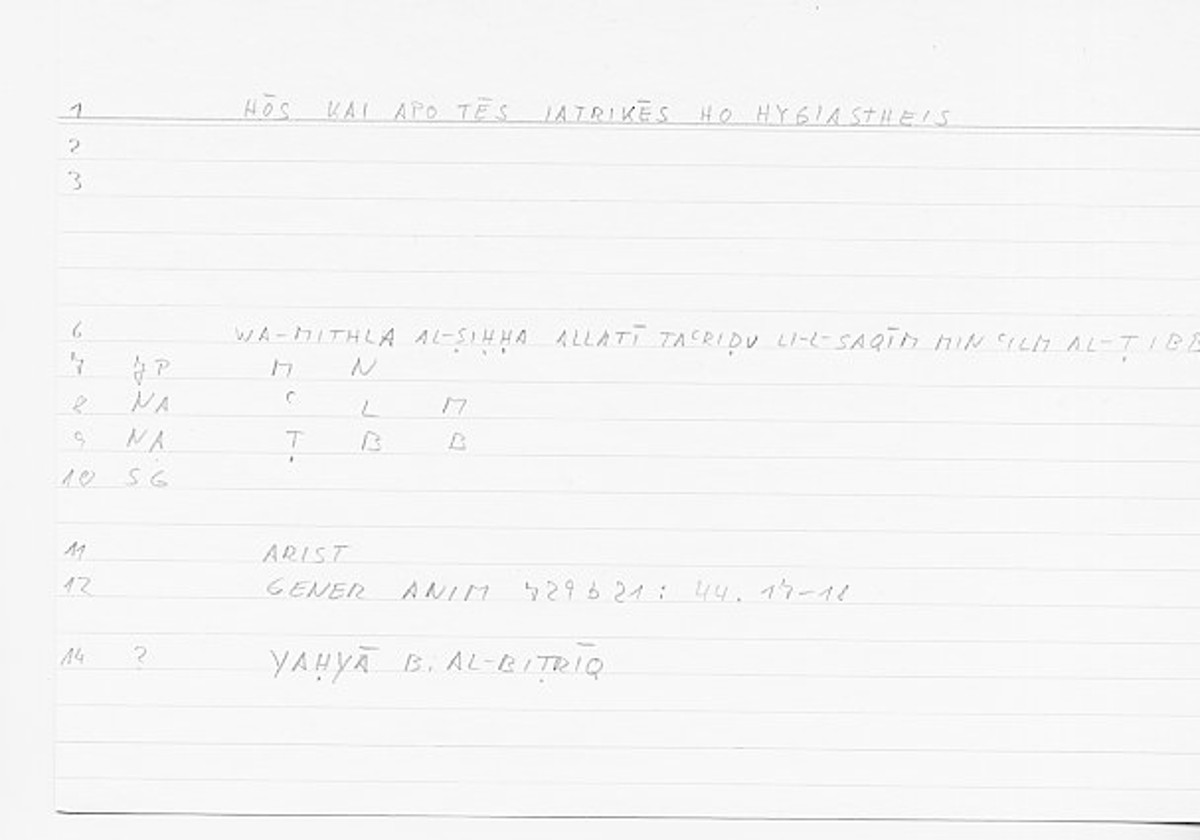 1 HŌS KAI APO TĒS IATRIKĒS HO HYGIASTHEIS
2
3
6 WA-MITHLA AL-ṢIḤḤA ALLATĪ TAʿRIḌU LI-L-SAQĪM MIN ʿILM AL-ṬIBB
7 JP M N
8 NA ʿ L M
9 NA Ṭ B B
10 SG
11 ARIST
12 GENER ANIM 729 b 21: 44. 17-18
14 ? YAḤYĀ B. AL-BIṬRĪQ